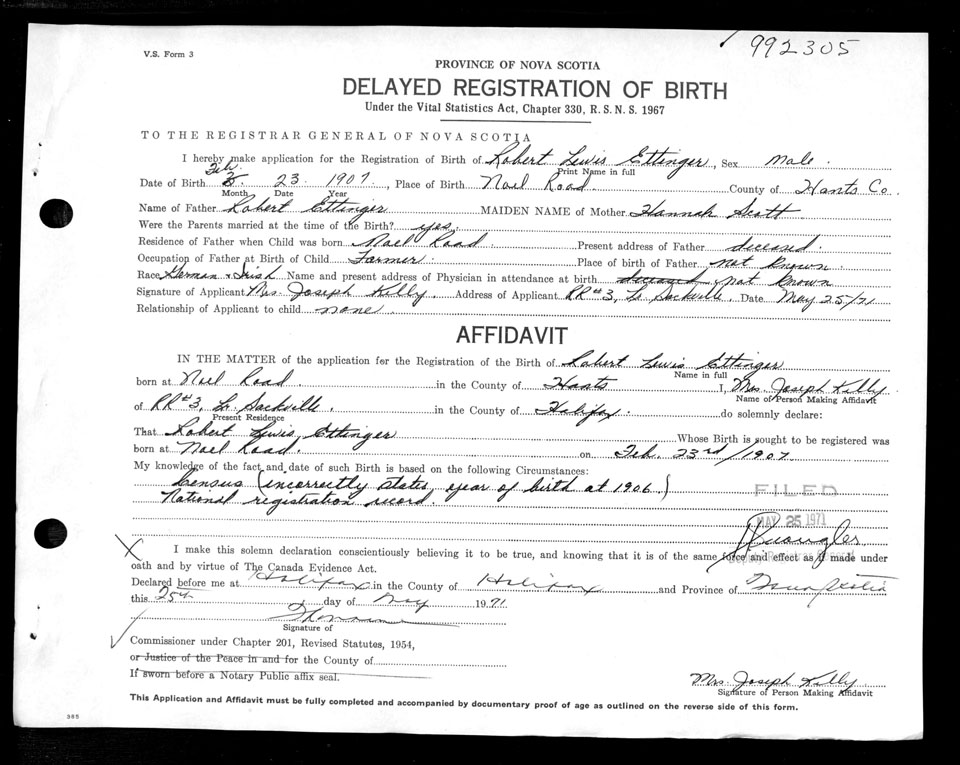 992305
V.S. Form 3
PROVINCE OF NOVA SCOTIA
DELAYED REGISTRATION OF BIRTH
Under the Vital Statistics Act, Chapter 330, R.S.N.S. 1967
TO THE REGISTRAR GENERAL OF NOVA SCOTIA
I hereby make application for the Registration of Birth of Robert Lewis Ettinger, Sex male.
Print Name in full
Date of Birth Feb. 23 1907, Place of Birth Noel Road County of Hants Co.
Month Date Year
Name of Father Robert Ettinger MAIDEN NAME of Mother Hannah Scott
Were the Parents married at the time of the Birth? yes.
Residence of Father when Child was born Noel Road. Present address of Father deceased.
Occupation of Father at Birth of Child Farmer. Place of birth of Father not known.
Race German & Irish Name and present address of Physician in attendance at birth deceased, not known
Signature of Applicant Mrs Joseph Killy. Address of Applicant RR#3, L. Sackville. Date May 25/71
Relationship of Applicant to child none.
AFFIDAVIT
IN THE MATTER of the application for the Registration of the Birth of Robert Lewis Ettinger
Name in full
born at Noel Road. in the County of Hants I, Mrs. Joseph Killy.
Name of Person Making Affidavit
of RR#3, L. Sackville. in the County of Halifax. do solemnly declare:
Present Residence
That Robert Lewis Ettinger Whose Birth is sought to be registered was
born at Noel Road. on Feb. 23rd/1907.
My knowledge of the fact and date of such Birth is based on the following Circumstances:
Census (incorrectly states year of birth at 1906.)
National registration record.
FILED
MAY 25 1971
I make this solemn declaration conscientiously believing it to be true, and knowing that it is of the same force and effect as if made under
oath and by virtue of The Canada Evidence Act.
Declared before me at Halifax in the County of Halifax and Province of Nova Scotia
this 25th day of May 1971
Signature of
Commissioner under Chapter 201, Revised Statutes, 1954,
or Justice of the Peace in and for the County of
If sworn before a Notary Public affix seal.
Mrs Joseph Killy
Signature of Person Making Affidavit
This Application and Affidavit must be fully completed and accompanied by documentary proof of age as outlined on the reverse side of this form.
385